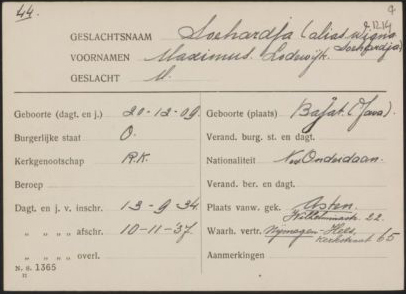 44.
9
R14
GESLACHTSNAAM Soehardja (alias Wigna
VOORNAMEN Maximus. Lodewijk. Soehardja)
GESLACHT M.
Geboorte (dagt. en j.) 20-12-09 Geboorte (plaats) (Java).
Burgerlijke staat O. Verand. burg. st. en dagt.
Kerkgenootschap R.K. Nationaliteit Ned Onderdaan.
Beroep Verand. ber. en dagt.
Dagt. en j. v. inschr. 13-9-34 Plaats vanw. gek. Asten.
Wilhelminastr. 22.
„ „ „ „ afschr. 10-11-'37 Waarh. vertr. Nijmegen - Hees.
Kerkstraat 65
„ „ „ „ overl. Aanmerkingen
N. B. 1365